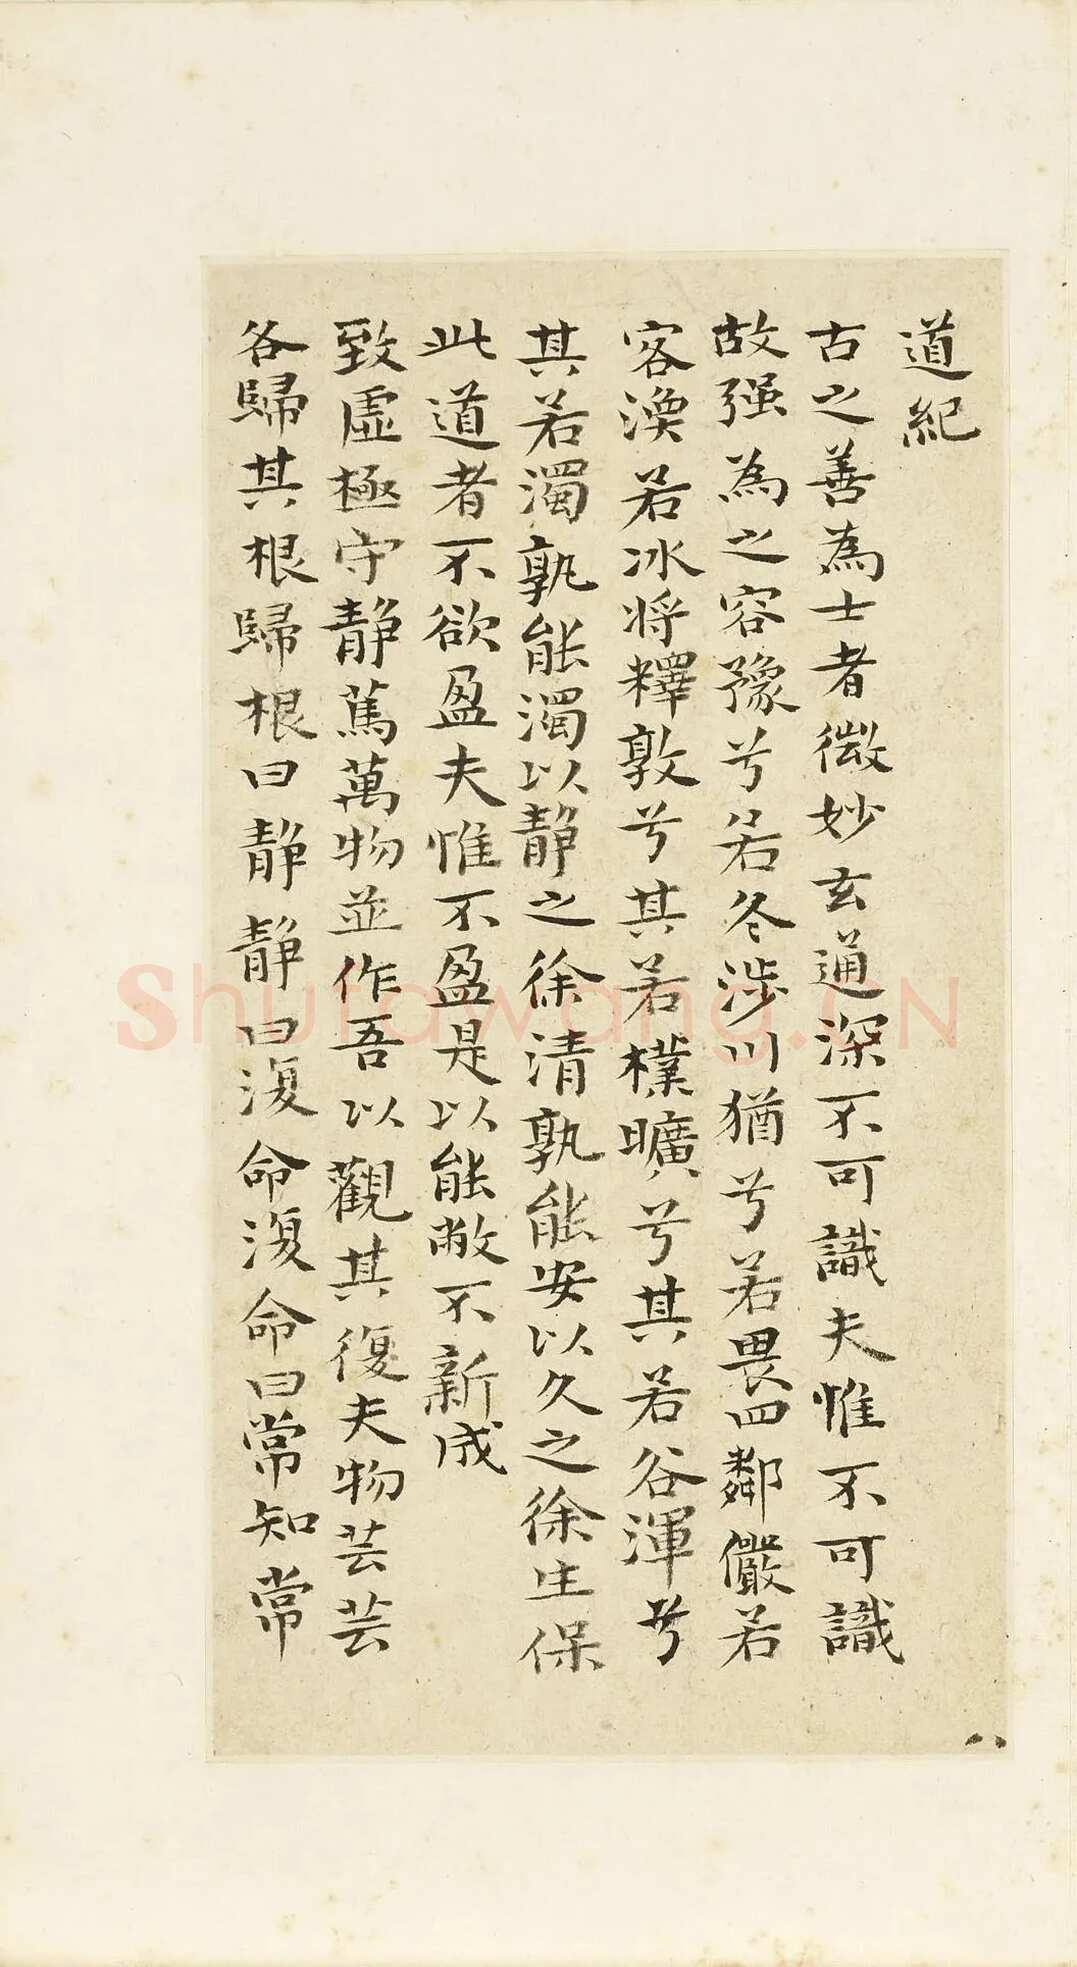 道紀
古之善為士者微妙玄通深不可識夫惟不可識
故强為之容豫兮若冬涉川猶兮若畏四鄰儼若
客渙若冰將釋敦兮其若樸曠兮其若谷渾兮
其若濁孰能濁以静之徐清孰能安以久之徐生保
此道者不欲盈夫惟不盈是以能敝不新成
致虛極守静篤萬物並作吾以觀其復夫物芸芸
各歸其根歸根曰静静曰復命復命曰常知常
八
Shufawang.CN